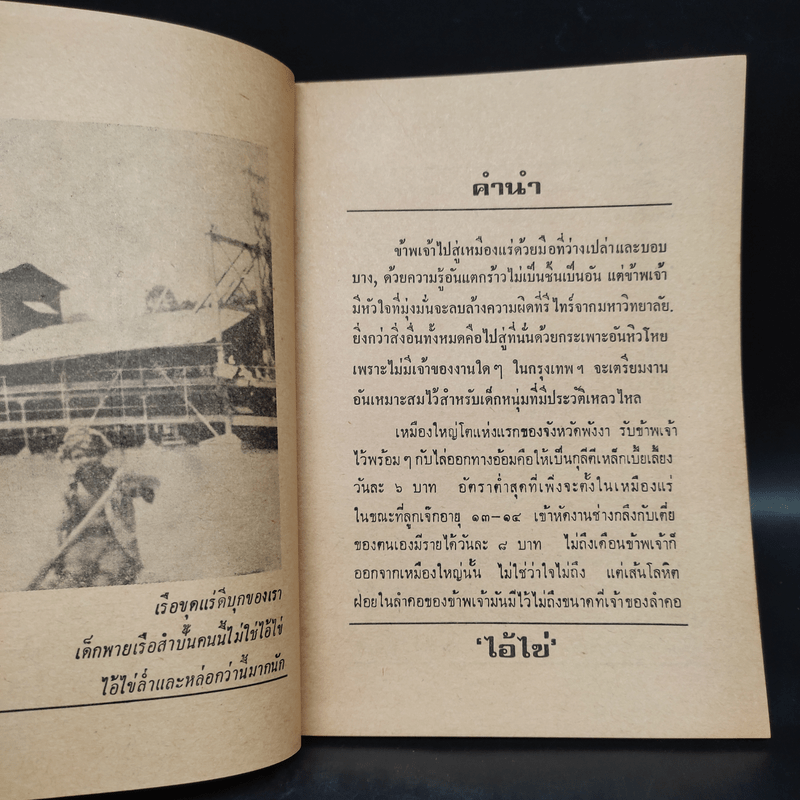 เรือขุดแร่ดีบุกของเรา
เด็กพายเรือสำปั้นคนนี้ไม่ใช่ไอ้ไข่
ไอ้ไข่ล่ำและหล่อกว่านี้มากนัก
คำนำ
ข้าพเจ้าไปสู่เหมืองแร่ด้วยมือที่ว่างเปล่าและบอบ
บาง, ด้วยความรู้อันแตกร้าวไม่เป็นชิ้นเป็นอัน แต่ข้าพเจ้า
มีหัวใจที่มุ่งมั่นจะลบล้างความผิดที่รีไทร์จากมหาวิทยาลัย.
ยิ่งกว่าสิ่งอื่นทั้งหมดคือไปสู่ที่นั่นด้วยกระเพาะอันหิวโหย
เพราะไม่มีเจ้าของงานใดๆ ในกรุงเทพฯ จะเตรียมงาน
อันเหมาะสมไว้สำหรับเด็กหนุ่มที่มีประวัติเหลวไหล
เหมืองใหญ่โตแห่งแรกของจังหวัดพังงา รับข้าพเจ้า
ไว้พร้อมๆ กับไล่ออกทางอ้อมคือให้เป็นกุลีตีเหล็กเบี้ยเลี้ยง
วันละ ๖ บาท อัตราต่ำสุดที่เพิ่งจะตั้งในเหมืองแร่
ในขณะที่ลูกเจ๊กอายุ ๑๓–๑๔ เข้าหัดงานช่างกลึงกับเตี่ย
ของตนเองมีรายได้วันละ ๘ บาท ไม่ถึงเดือนข้าพเจ้าก็
ออกจากเหมืองใหญ่นั้น ไม่ใช่ว่าใจไม่ถึง แต่เส้นโลหิต
ฝอยในลำคอของข้าพเจ้ามันมีไว้ไม่ถึงขนาดที่เจ้าของลำคอ
‘ไอ้ไข่’